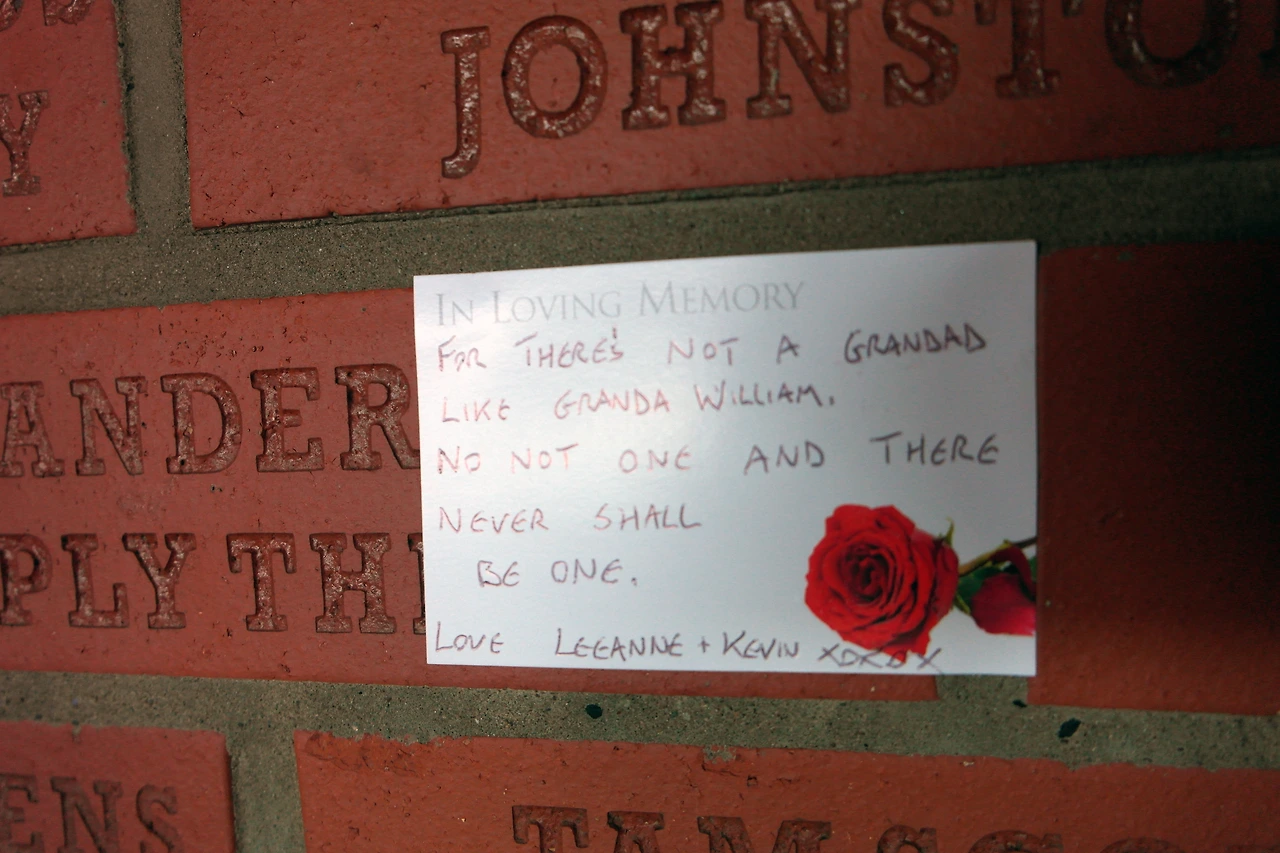 Y
JOHNSTO
ANDER
PLY THI
IN LOVING MEMORY
FOR THERE'S NOT A GRANDAD
LIKE GRANDA WILLIAM.
NO NOT ONE AND THERE
NEVER SHALL
BE ONE.
LOVE LEEANNE + KEVIN XOXOX
ENS